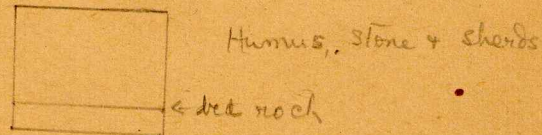 Humus, stone + sherds
← bed rock